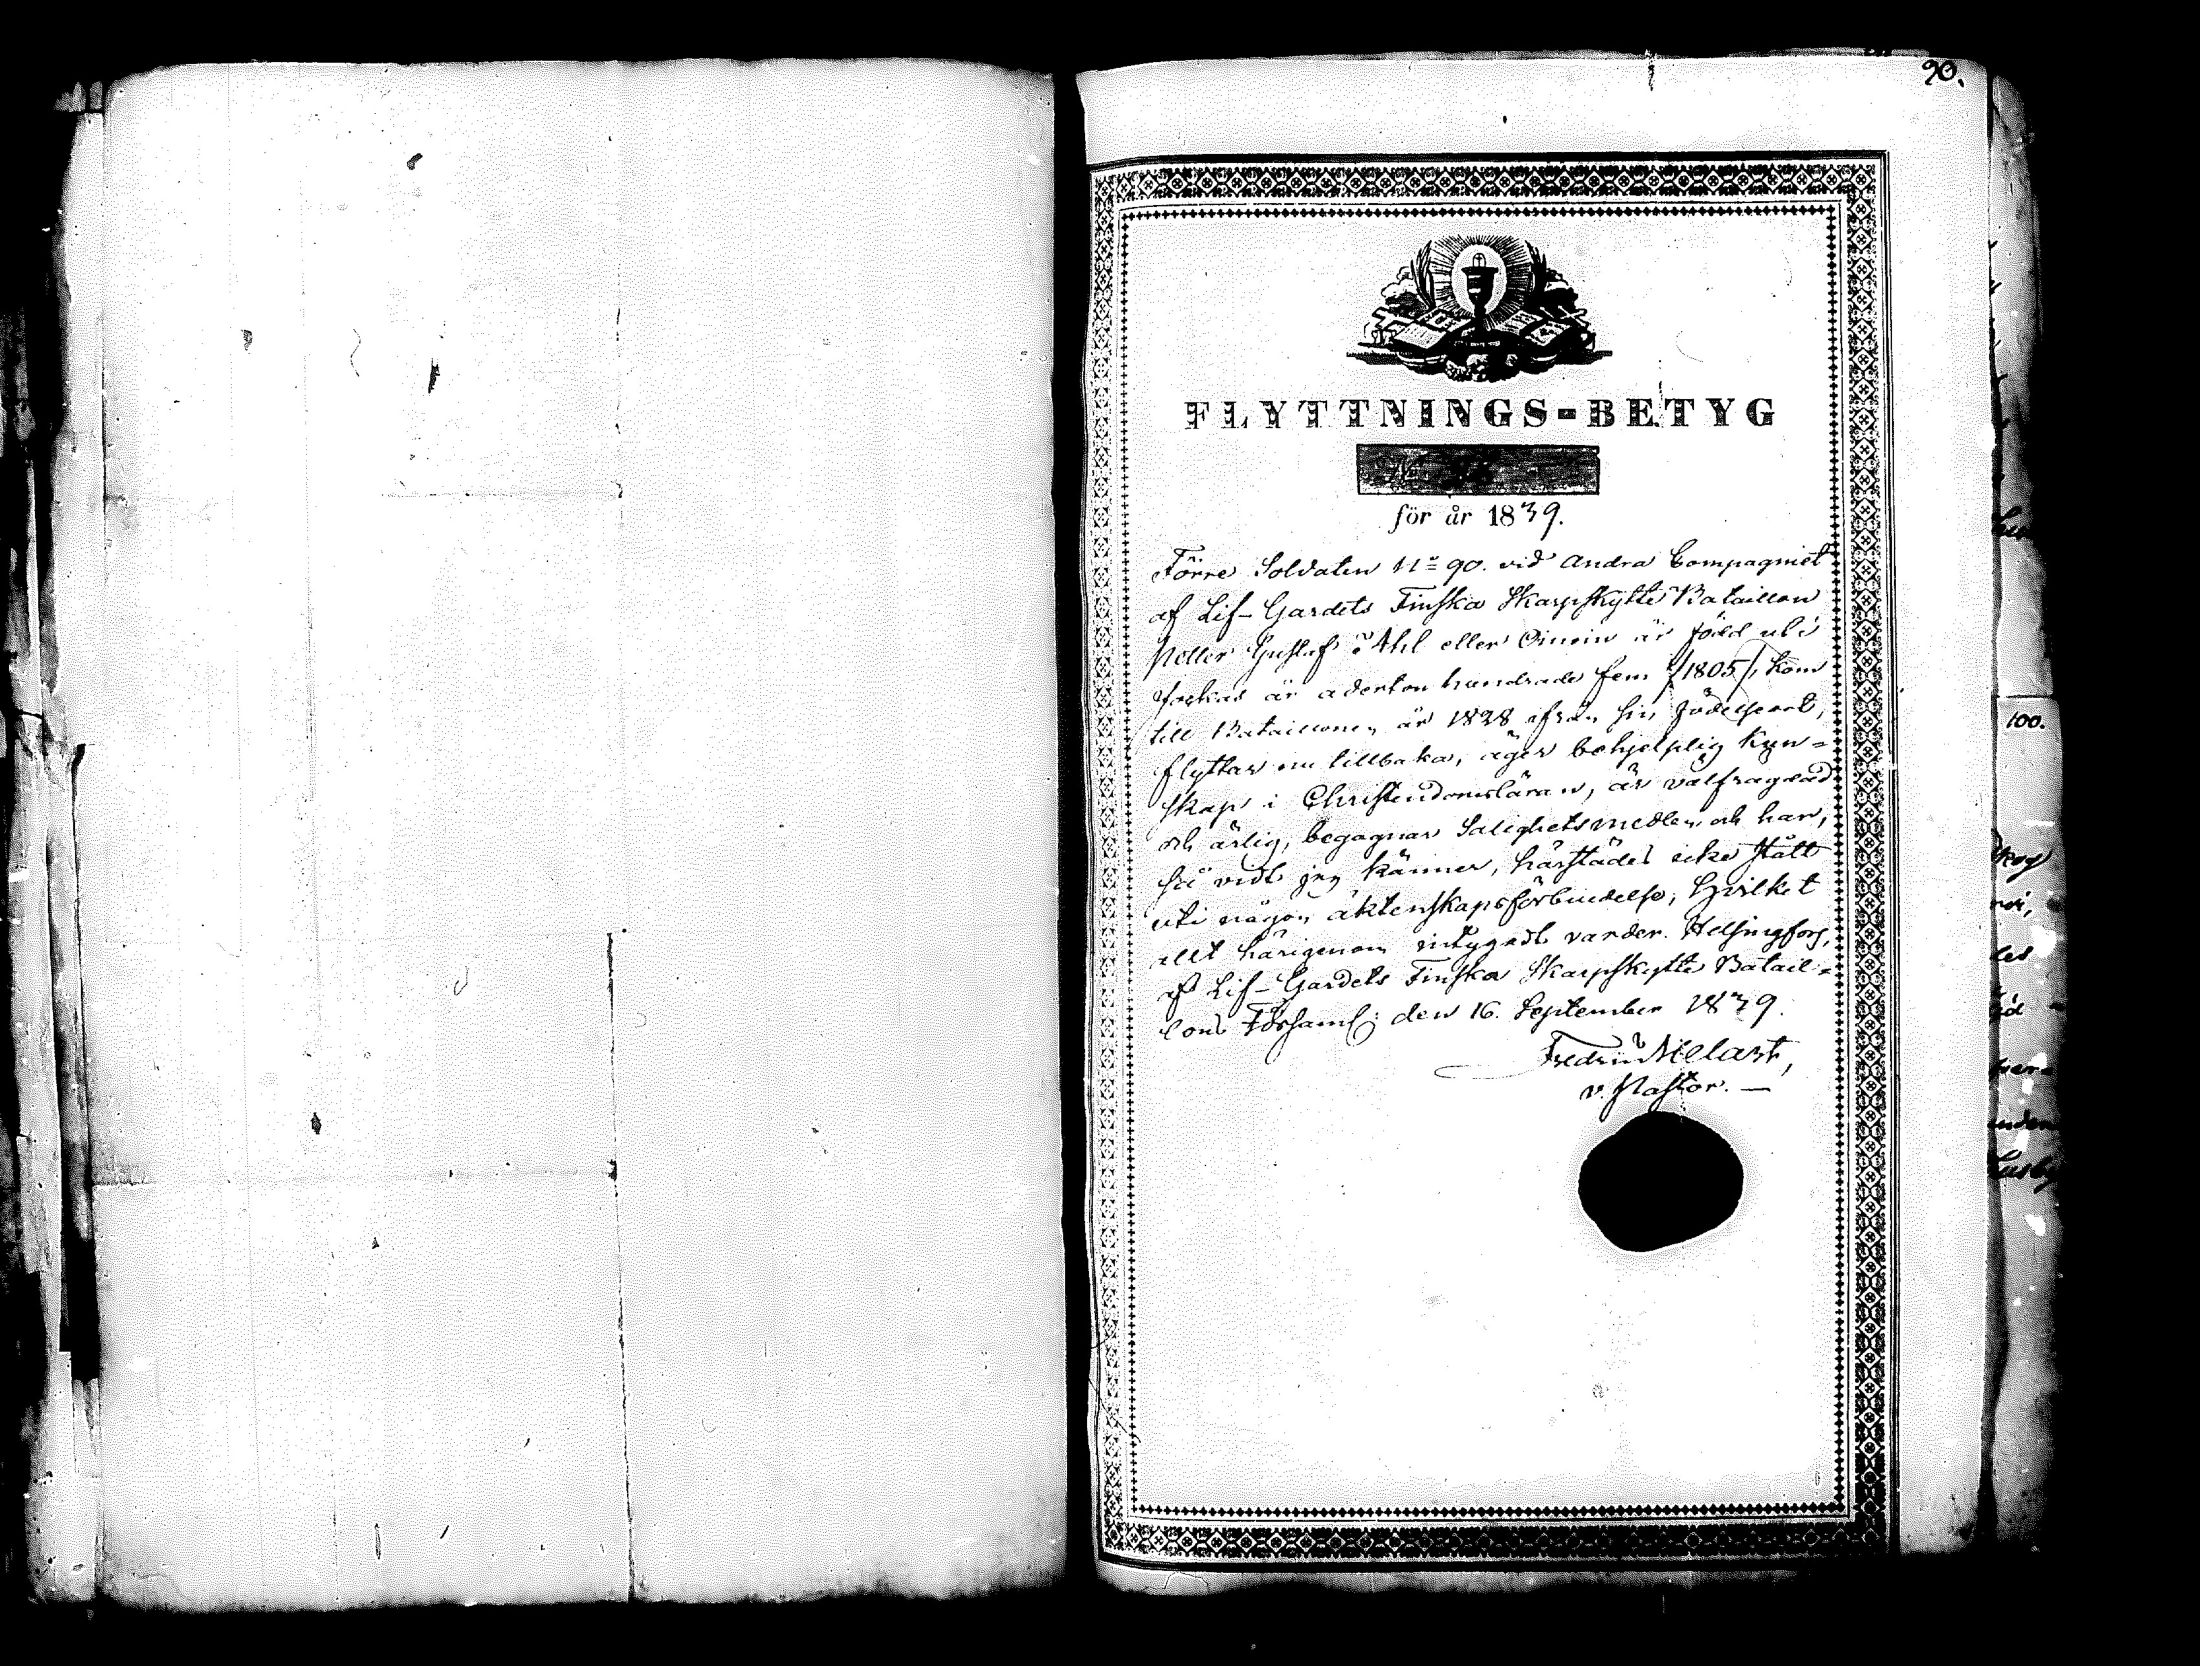 90.
FLYTTNINGS-BETYG
för år 1839.
Förre Soldaten No 90. vid Andra Compagniet
af Lif-Gardets Finska Skarpskytte Bataillon
Petter Gustaf Ahl eller Oinoin är född uti
Jockas år adertonhundrade fem /1805/, kom
till Bataillonen år 1828 ifrån sin födelseort,
flyttar nu tillbaka, äger behjelplig Kun-
skap i Christendomsläran, är välfrägdad
och ärlig, begagnar Salighetsmedlen och har,
så vidt jag känner, härstädes icke stått
uti någon äktenskapsförbindelse; Hvilket
allt härigenom intygadt varder. Helsingfors,
af Lif-Gardets Finska Skarpskytte Batail-
lons Församl: den 16. September 1839.
Fredric Melart,
v. Pastor.
100.